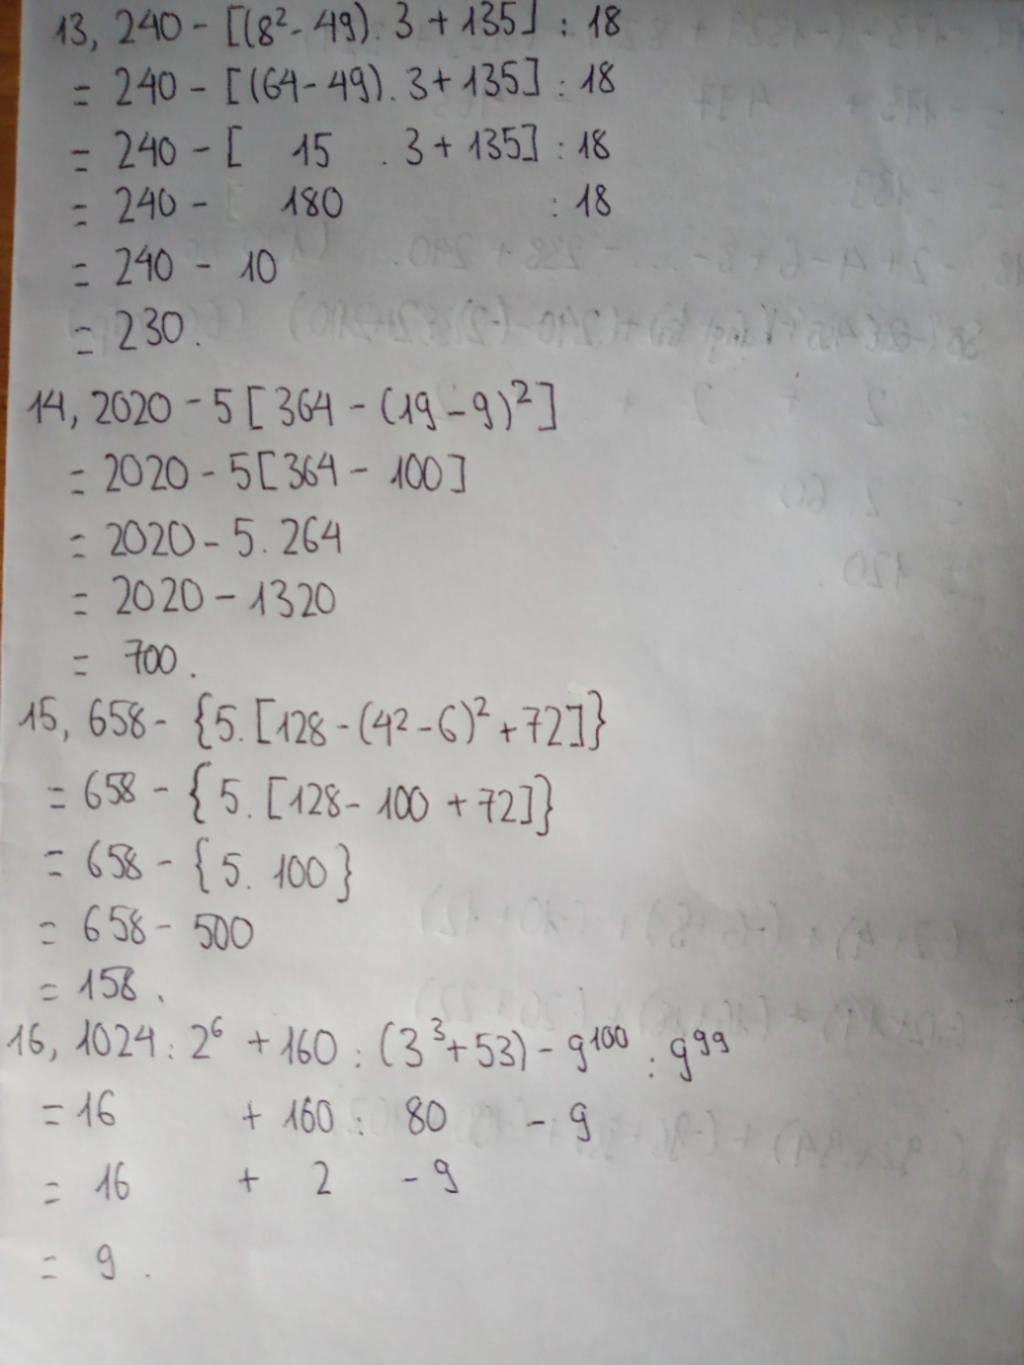 13, 240 - [(8² - 49) . 3 + 135] : 18
= 240 - [(64 - 49) . 3 + 135] : 18
= 240 - [ 15 . 3 + 135] : 18
= 240 - 180 : 18
= 240 - 10
= 230.
14, 2020 - 5 [364 - (19 - 9)²]
= 2020 - 5 [364 - 100]
= 2020 - 5 . 264
= 2020 - 1320
= 700.
15, 658 - {5. [128 - (4² - 6)² + 72]}
= 658 - {5. [128 - 100 + 72]}
= 658 - {5. 100}
= 658 - 500
= 158.
16, 1024 : 2⁶ + 160 : (3³ + 53) - 9¹⁰⁰ : 9⁹⁹
= 16 + 160 : 80 - 9
= 16 + 2 - 9
= 9.